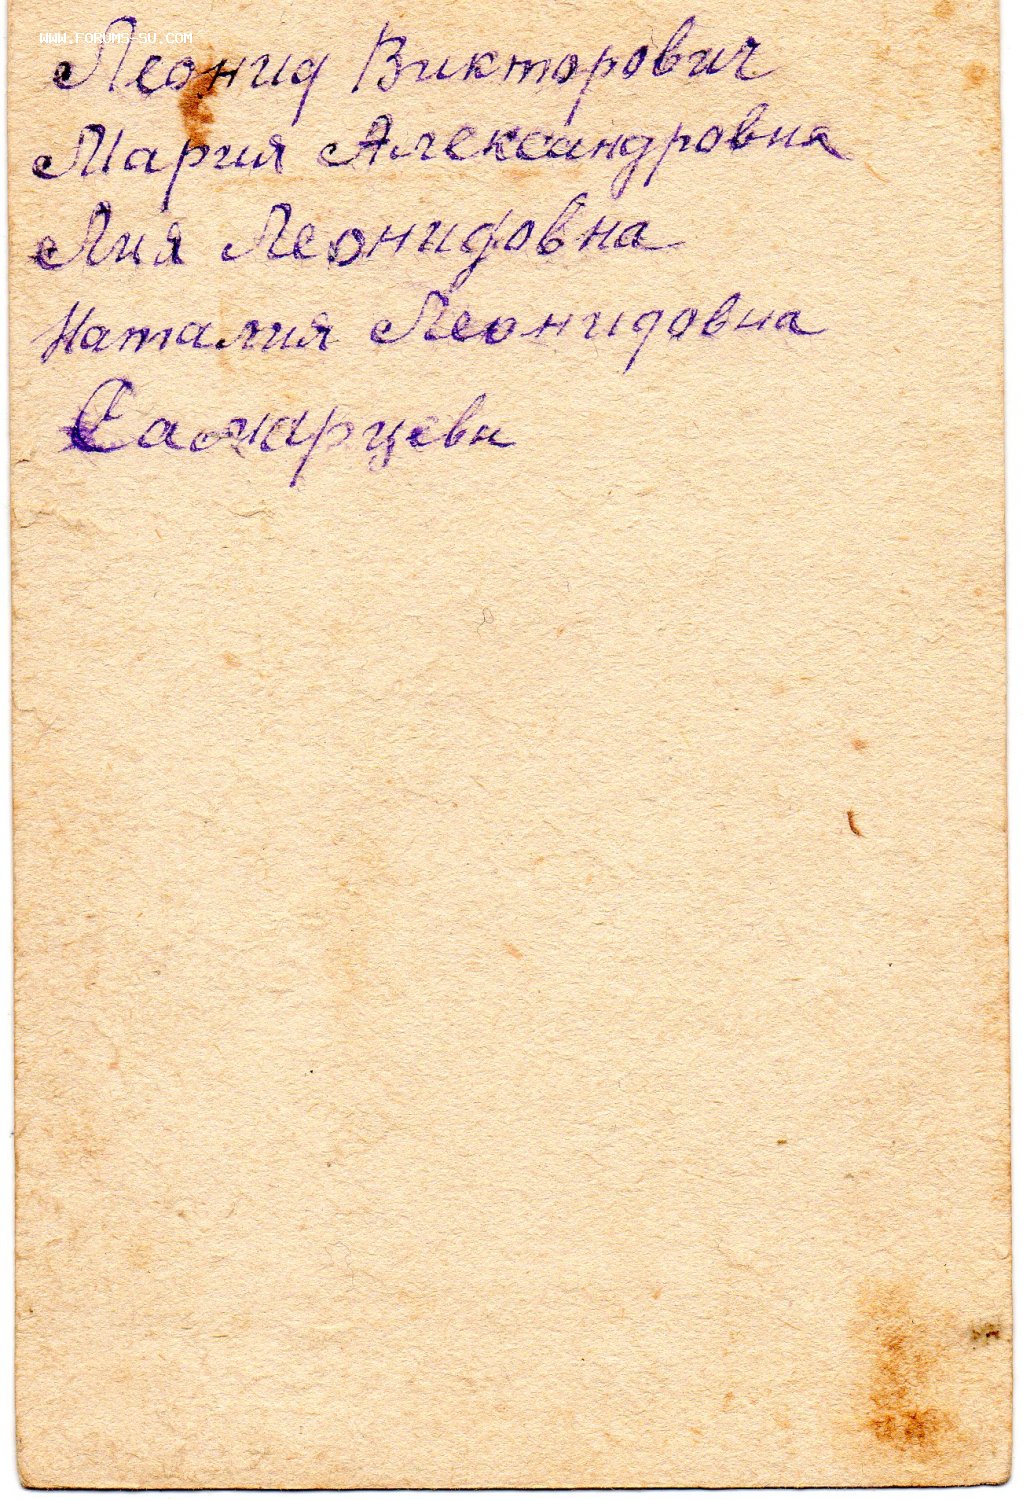 WWW.FORUMSSSU.COM
Леонид Викторович
Мария Александровна
Лия Леонидовна
Наталия Леонидовна
Самарцевы